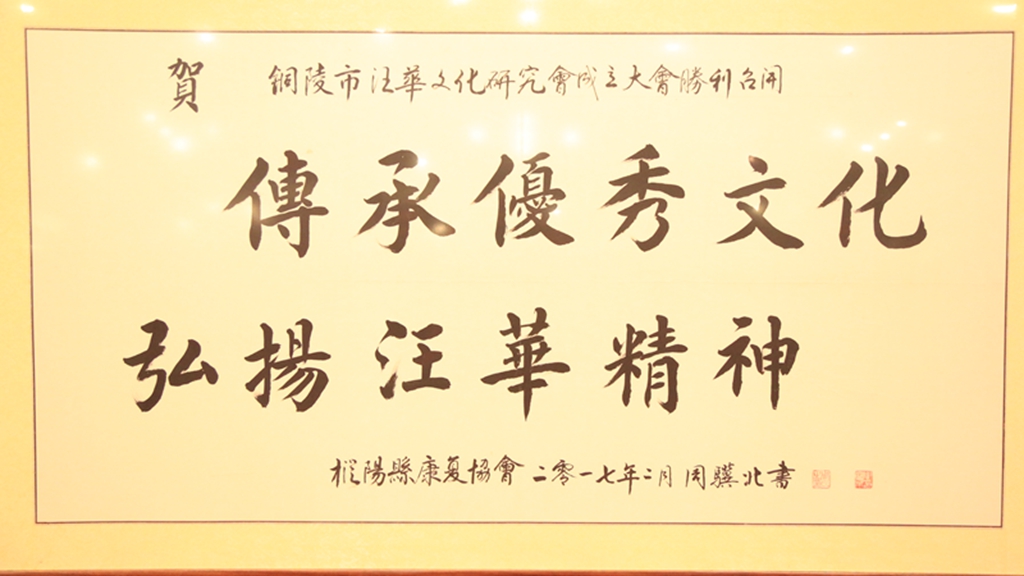 賀 銅陵市汪華文化研究會成立大會勝利召開
傳承優秀文化
弘揚汪華精神
樅陽縣康复協會 二零一七年二月 周驥北書